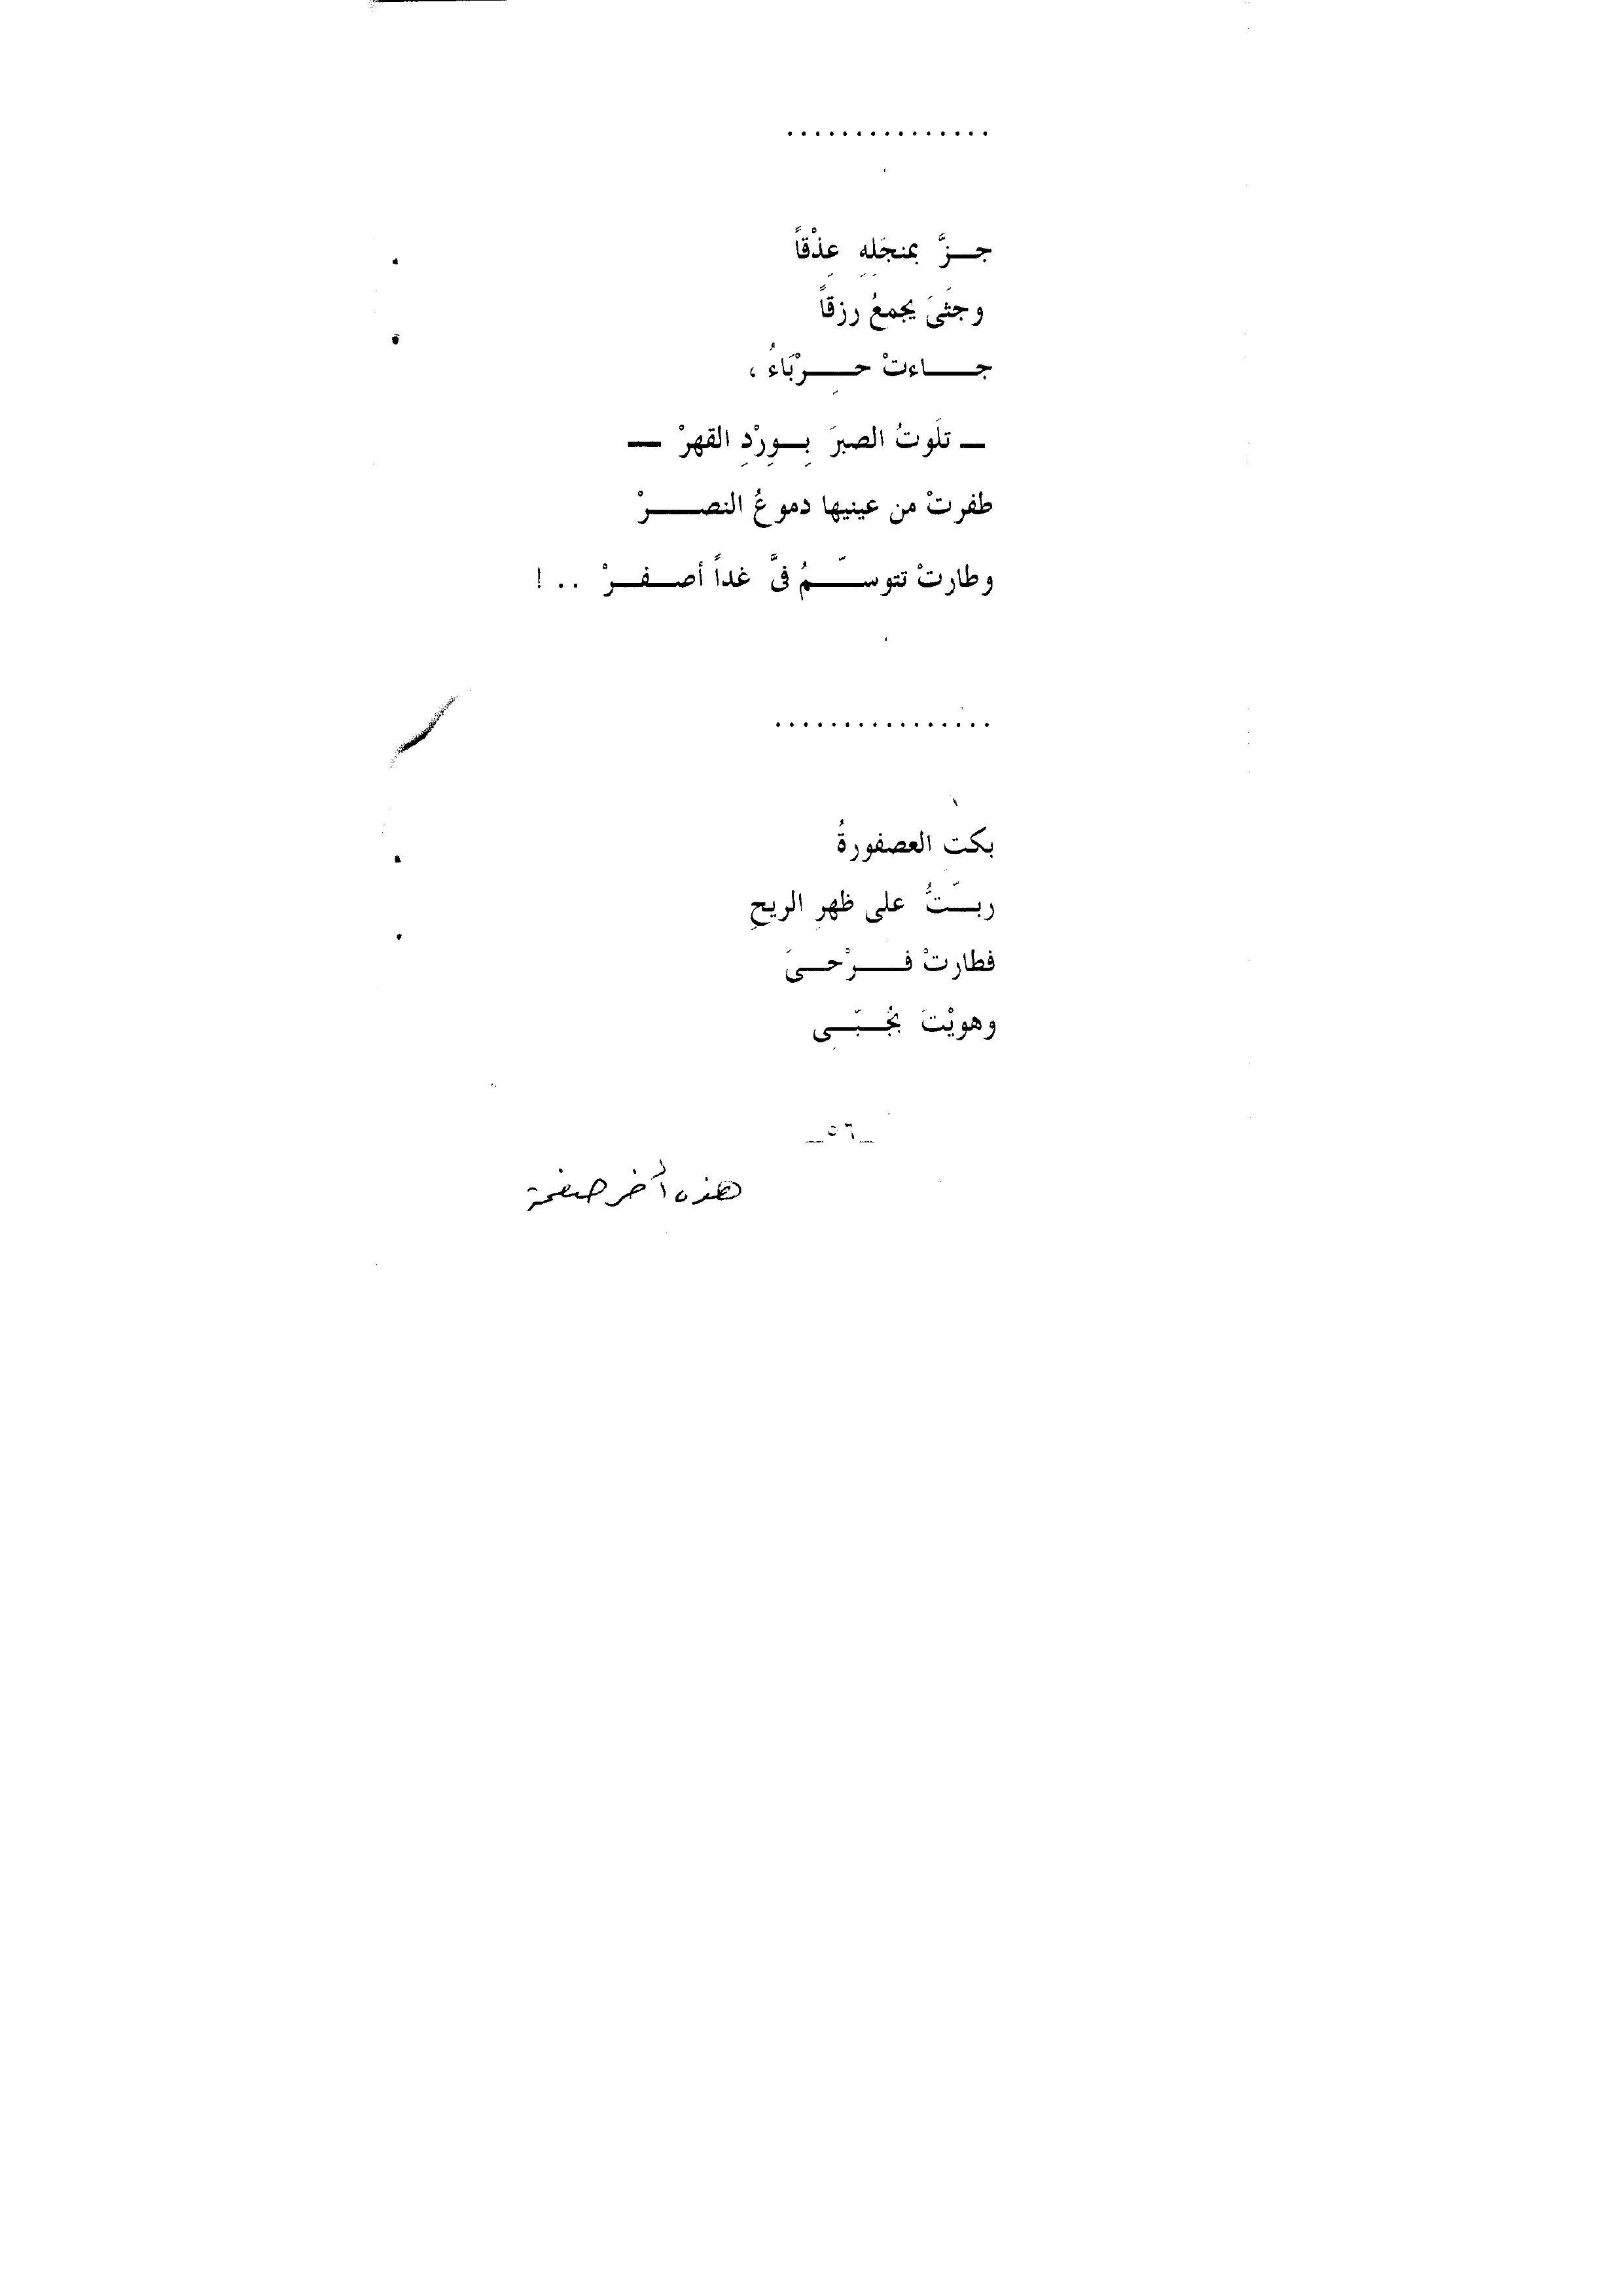 ...............
جـــزَّ بمنجَلِهِ عِذْقاً
وجثىَ يجمعُ رزقاً
جـــاءتْ حِـــرْبَاءُ ،
ــ تلَوتُ الصبرَ بِـــوِرْدِ القهرْ ــ
طفرتْ من عينيها دموعُ النصـــرْ
وطارتْ تتوســـّمُ فىَّ غداً أصـــفـــرْ .. !
................
بكت العصفورةُ
ربـــّتُّ على ظهرِ الريحِ
فطارتْ فـــرْحـــىَ
وهويْتَ بجُـــبّـــى
_٥٦_
هذه أخر صفحة